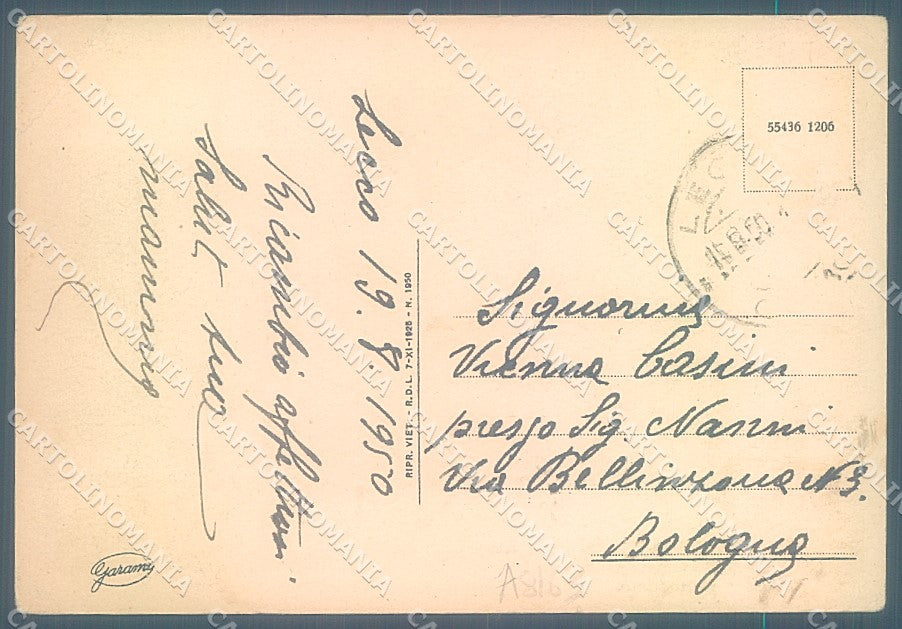 Lecco 19.8.1950
Ricambio affettuosi
Saluti suo
55436 1206
LECCO
Signorina
Vienna Casini
presso Sig Nanni
Via Bellinzona N 3.
Bologna
RIPR. VIET. - R.D.L. 7-XI-1925 - N. 1950
Garami
CARTOLINOMANIA